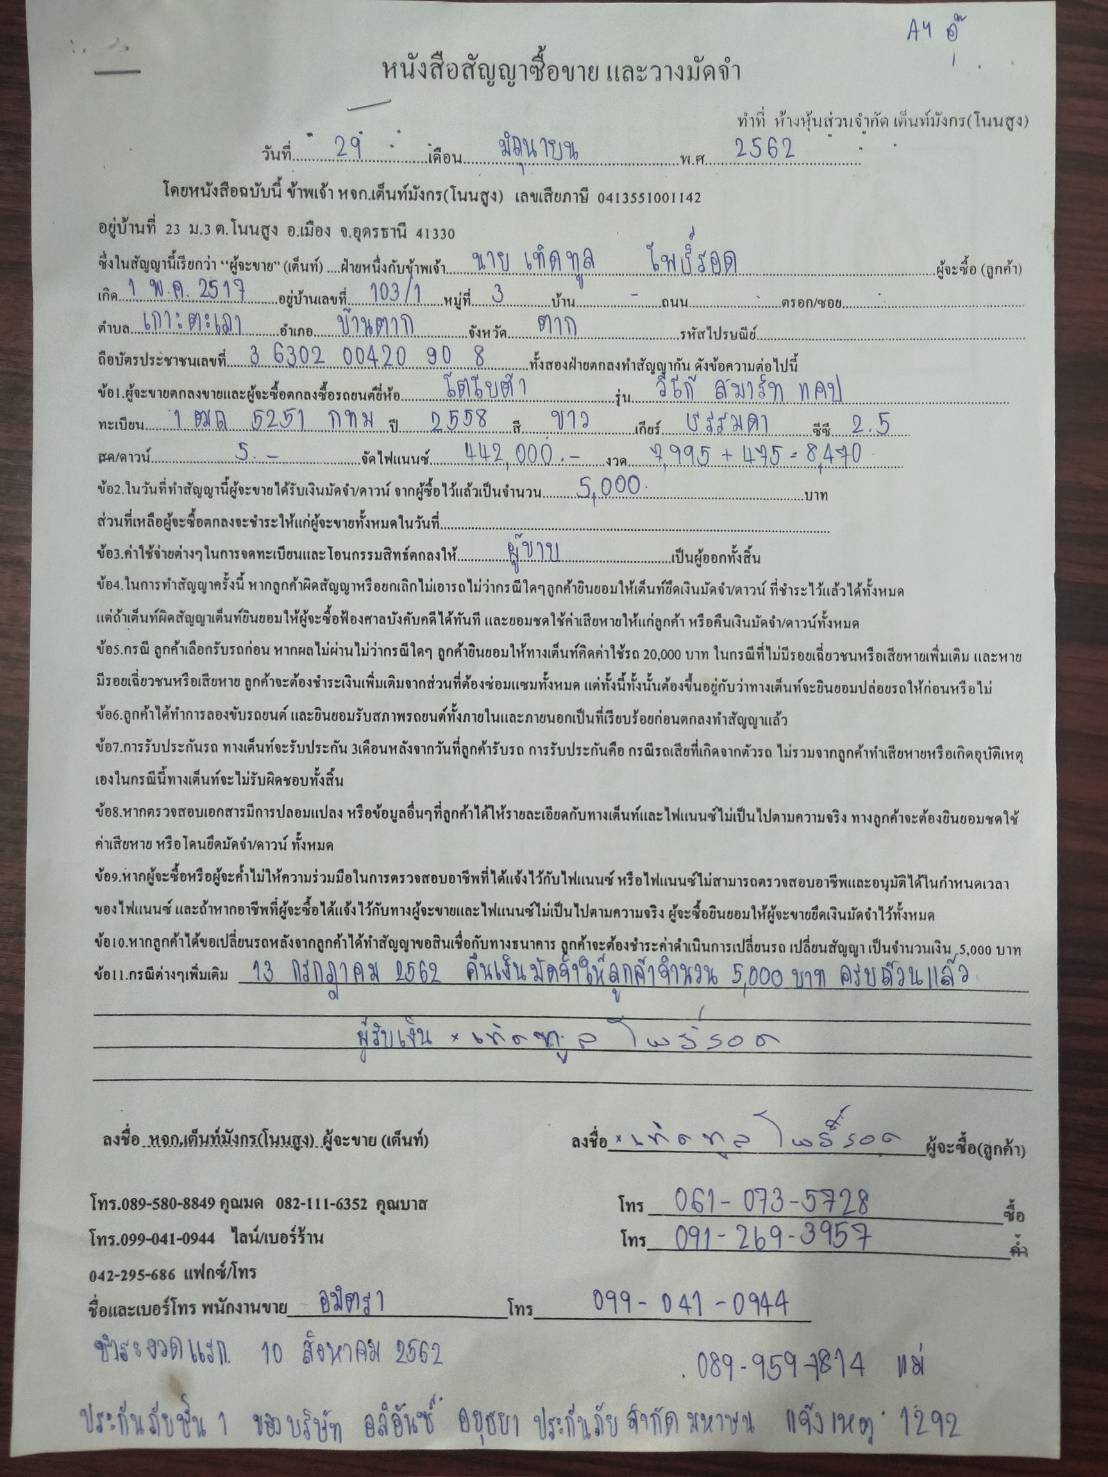 A4 อุ๊
หนังสือสัญญาซื้อขาย และวางมัดจำ
ทำที่ ห้างหุ้นส่วนจำกัด เต็นท์มังกร(โนนสูง)
วันที่ 29 เดือน มิถุนายน พ.ศ. 2562
โดยหนังสือฉบับนี้ ข้าพเจ้า หจก.เต็นท์มังกร(โนนสูง) เลขเสียภาษี 0413551001142
อยู่บ้านที่ 23 ม.3 ต.โนนสูง อ.เมือง จ.อุดรธานี 41330
ซึ่งในสัญญานี้เรียกว่า “ผู้จะขาย” (เต็นท์) ....ฝ่ายหนึ่งกับข้าพเจ้า นาย เทิดทูล โพธิ์รอด ผู้จะซื้อ (ลูกค้า)
เกิด 1 พ.ค. 2517 อยู่บ้านเลขที่ 103/1 หมู่ที่ 3 บ้าน - ถนน ตรอก/ซอย
ตำบล เกาะตะเภา อำเภอ บ้านตาก จังหวัด ตาก รหัสไปรษณีย์
ถือบัตรประชาชนเลขที่ 3 6302 00420 90 8 ทั้งสองฝ่ายตกลงทำสัญญากัน ดังข้อความต่อไปนี้
ข้อ1.ผู้จะขายตกลงขายและผู้จะซื้อตกลงซื้อรถยนต์ยี่ห้อ โตโยต้า รุ่น วีโก้ สมาร์ท แคป
ทะเบียน 1 ฒถ 5251 กทม ปี 2558 สี ขาว เกียร์ ธรรมดา ซีซี 2.5
สด/ดาวน์ 5.- จัดไฟแนนซ์ 442,000.- งวด 7,995 + 475 = 8,470
ข้อ2.ในวันที่ทำสัญญานี้ผู้จะขายได้รับเงินมัดจำ/ดาวน์ จากผู้ซื้อไว้แล้วเป็นจำนวน 5,000 บาท
ส่วนที่เหลือผู้จะซื้อตกลงจะชำระให้แก่ผู้จะขายทั้งหมดในวันที่
ข้อ3.ค่าใช้จ่ายต่างๆในการจดทะเบียนและโอนกรรมสิทธิ์ตกลงให้ ผู้ขาย เป็นผู้ออกทั้งสิ้น
ข้อ4.ในการทำสัญญาครั้งนี้ หากลูกค้าผิดสัญญาหรือยกเลิกไม่เอารถไม่ว่ากรณีใดๆลูกค้ายินยอมให้เต็นท์ยึดเงินมัดจำ/ดาวน์ ที่ชำระไว้แล้วได้ทั้งหมด
แต่ถ้าเต็นท์ผิดสัญญาเต็นท์ยินยอมให้ผู้จะซื้อฟ้องศาลบังคับคดีได้ทันที และยอมชดใช้ค่าเสียหายให้แก่ลูกค้า หรือคืนเงินมัดจำ/ดาวน์ทั้งหมด
ข้อ5.กรณี ลูกค้าเลือกรับรถก่อน หากผลไม่ผ่านไม่ว่ากรณีใดๆ ลูกค้ายินยอมให้ทางเต็นท์คิดค่าใช้รถ 20,000 บาท ในกรณีที่ไม่มีรอยเฉี่ยวชนหรือเสียหายเพิ่มเติม และหาย
มีรอยเฉี่ยวชนหรือเสียหาย ลูกค้าจะต้องชำระเงินเพิ่มเติมจากส่วนที่ต้องซ่อมแซมทั้งหมด แต่ทั้งนี้ทั้งนั้นต้องขึ้นอยู่กับว่าทางเต็นท์จะยินยอมปล่อยรถให้ก่อนหรือไม่
ข้อ6.ลูกค้าได้ทำการลองขับรถยนต์ และยินยอมรับสภาพรถยนต์ทั้งภายในและภายนอกเป็นที่เรียบร้อยก่อนตกลงทำสัญญาแล้ว
ข้อ7.การรับประกันรถ ทางเต็นท์จะรับประกัน 3เดือนหลังจากวันที่ลูกค้ารับรถ การรับประกันคือ กรณีรถเสียที่เกิดจากตัวรถ ไม่รวมจากลูกค้าทำเสียหายหรือเกิดอุบัติเหตุ
เองในกรณีนี้ทางเต็นท์จะไม่รับผิดชอบทั้งสิ้น
ข้อ8.หากตรวจสอบเอกสารมีการปลอมแปลง หรือข้อมูลอื่นๆที่ลูกค้าได้ให้รายละเอียดกับทางเต็นท์และไฟแนนซ์ไม่เป็นไปตามความจริง ทางลูกค้าจะต้องยินยอมชดใช้
ค่าเสียหาย หรือโดนยึดมัดจำ/ดาวน์ ทั้งหมด
ข้อ9.หากผู้จะซื้อหรือผู้จะค้ำไม่ให้ความร่วมมือในการตรวจสอบอาชีพที่ได้แจ้งไว้กับไฟแนนซ์ หรือไฟแนนซ์ไม่สามารถตรวจสอบอาชีพและอนุมัติได้ในกำหนดเวลา
ของไฟแนนซ์ และถ้าหากอาชีพที่ผู้จะซื้อได้แจ้งไว้กับทางผู้จะขายและไฟแนนซ์ไม่เป็นไปตามความจริง ผู้จะซื้อยินยอมให้ผู้จะขายยึดเงินมัดจำไว้ทั้งหมด
ข้อ10.หากลูกค้าได้ขอเปลี่ยนรถหลังจากลูกค้าได้ทำสัญญาขอสินเชื่อกับทางธนาคาร ลูกค้าจะต้องชำระค่าดำเนินการเปลี่ยนรถ เปลี่ยนสัญญา เป็นจำนวนเงิน 5,000 บาท
ข้อ11.กรณีต่างๆเพิ่มเติม 13 กรกฎาคม 2562 คืนเงินมัดจำให้ลูกค้าจำนวน 5,000 บาท ครบถ้วนแล้ว
ผู้รับเงิน x เทิดทูล โพธิ์รอด
ลงชื่อ หจก.เต็นท์มังกร(โนนสูง) ผู้จะขาย (เต็นท์) ลงชื่อ x เทิดทูล โพธิ์รอด ผู้จะซื้อ(ลูกค้า)
โทร.089-580-8849 คุณมด 082-111-6352 คุณบาส โทร 061-073-5728 ซื้อ
โทร.099-041-0944 ไลน์/เบอร์ร้าน โทร 091-269-3957 ค้ำ
042-295-686 แฟกซ์/โทร
ชื่อและเบอร์โทร พนักงานขาย อมิตรา โทร 099-041-0944
ชำระงวดแรก 10 สิงหาคม 2562 089-959-7814 แม่
ประกันภัยชั้น 1 ของบริษัท อลิอันซ์ อยุธยา ประกันภัย จำกัด มหาชน แจ้งเหตุ 1292